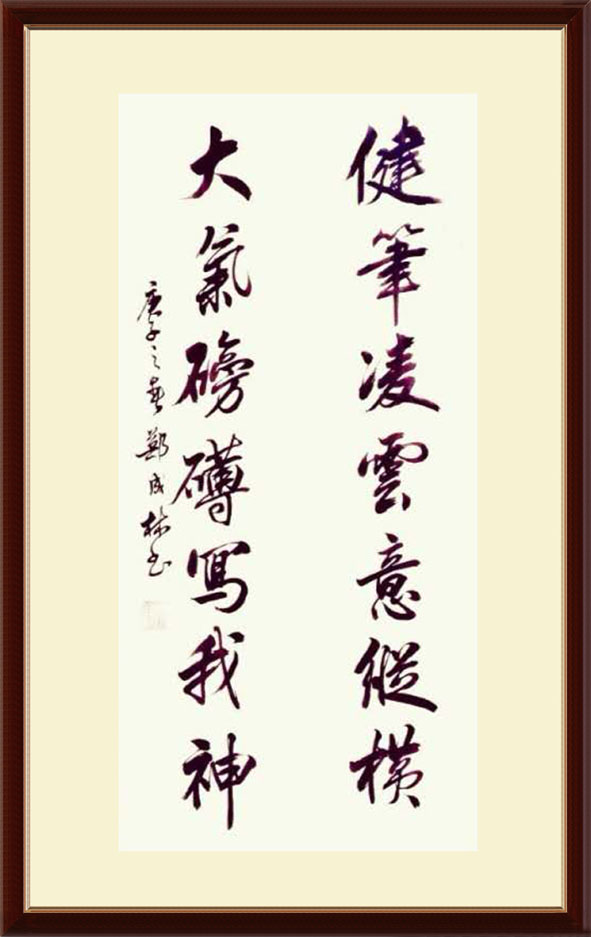 健筆凌雲意縱橫
大氣磅礡寫我神
庚子之春鄭成林书